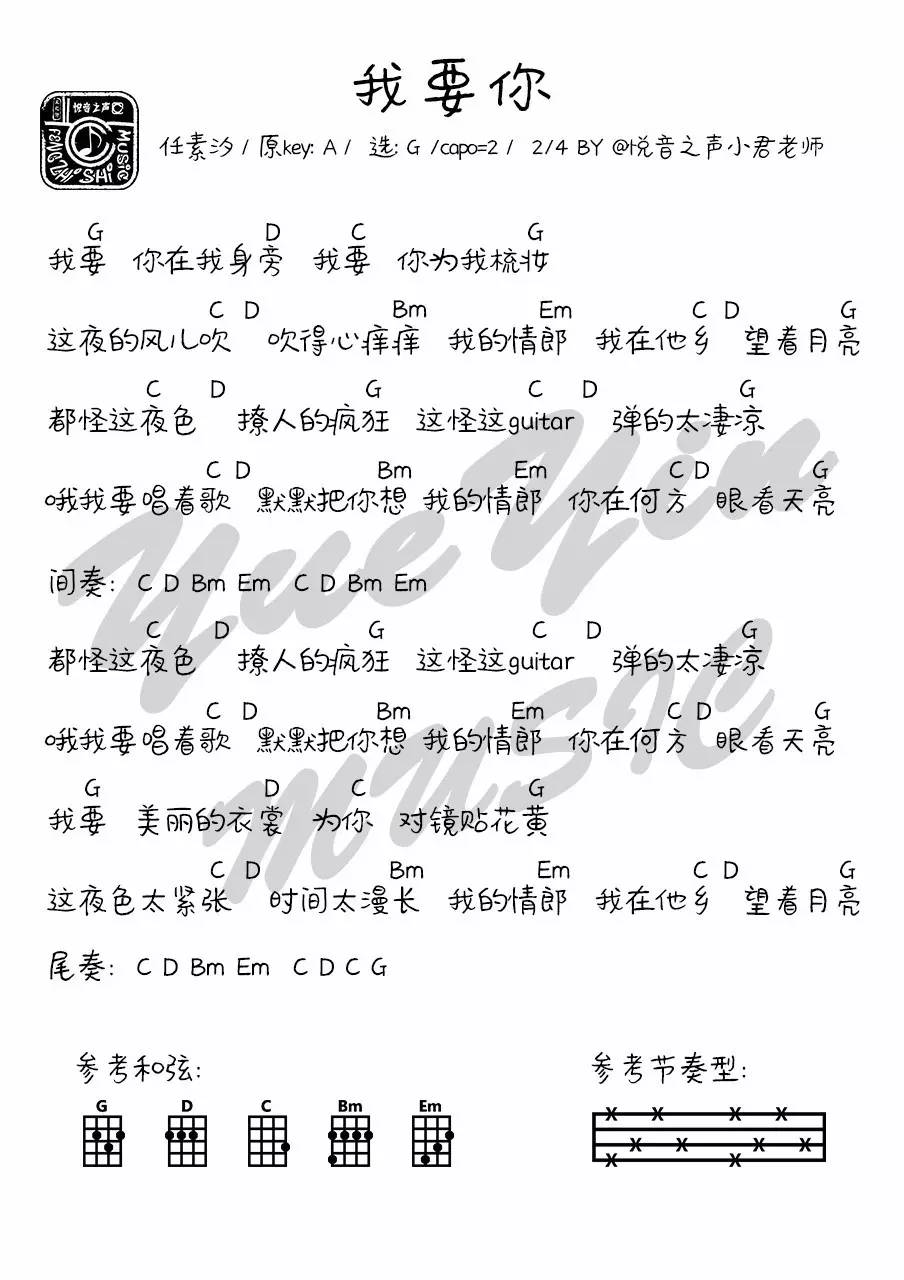 我要你
悦音之声
MUSIC
任素汐 / 原key: A / 选: G /capo=2 / 2/4 BY @悦音之声小君老师
G D C G
我要 你在我身旁 我要 你为我梳妆
C D Bm Em C D G
这夜的风儿吹 吹得心痒痒 我的情郎 我在他乡 望着月亮
C D G C D G
都怪这夜色 撩人的疯狂 这怪这guitar 弹的太凄凉
C D Bm Em C D G
哦我要唱着歌 默默把你想 我的情郎 你在何方 眼看天亮
间奏: C D Bm Em C D Bm Em
C D G C D G
都怪这夜色 撩人的疯狂 这怪这guitar 弹的太凄凉
C D Bm Em C D G
哦我要唱着歌 默默把你想 我的情郎 你在何方 眼看天亮
G D C G
我要 美丽的衣裳 为你 对镜贴花黄
C D Bm Em C D G
这夜色太紧张 时间太漫长 我的情郎 我在他乡 望着月亮
尾奏: C D Bm Em C D C G
YueYin
MUSIC
参考和弦: 参考节奏型:
G D C Bm Em
X X X X
X X X X
X X